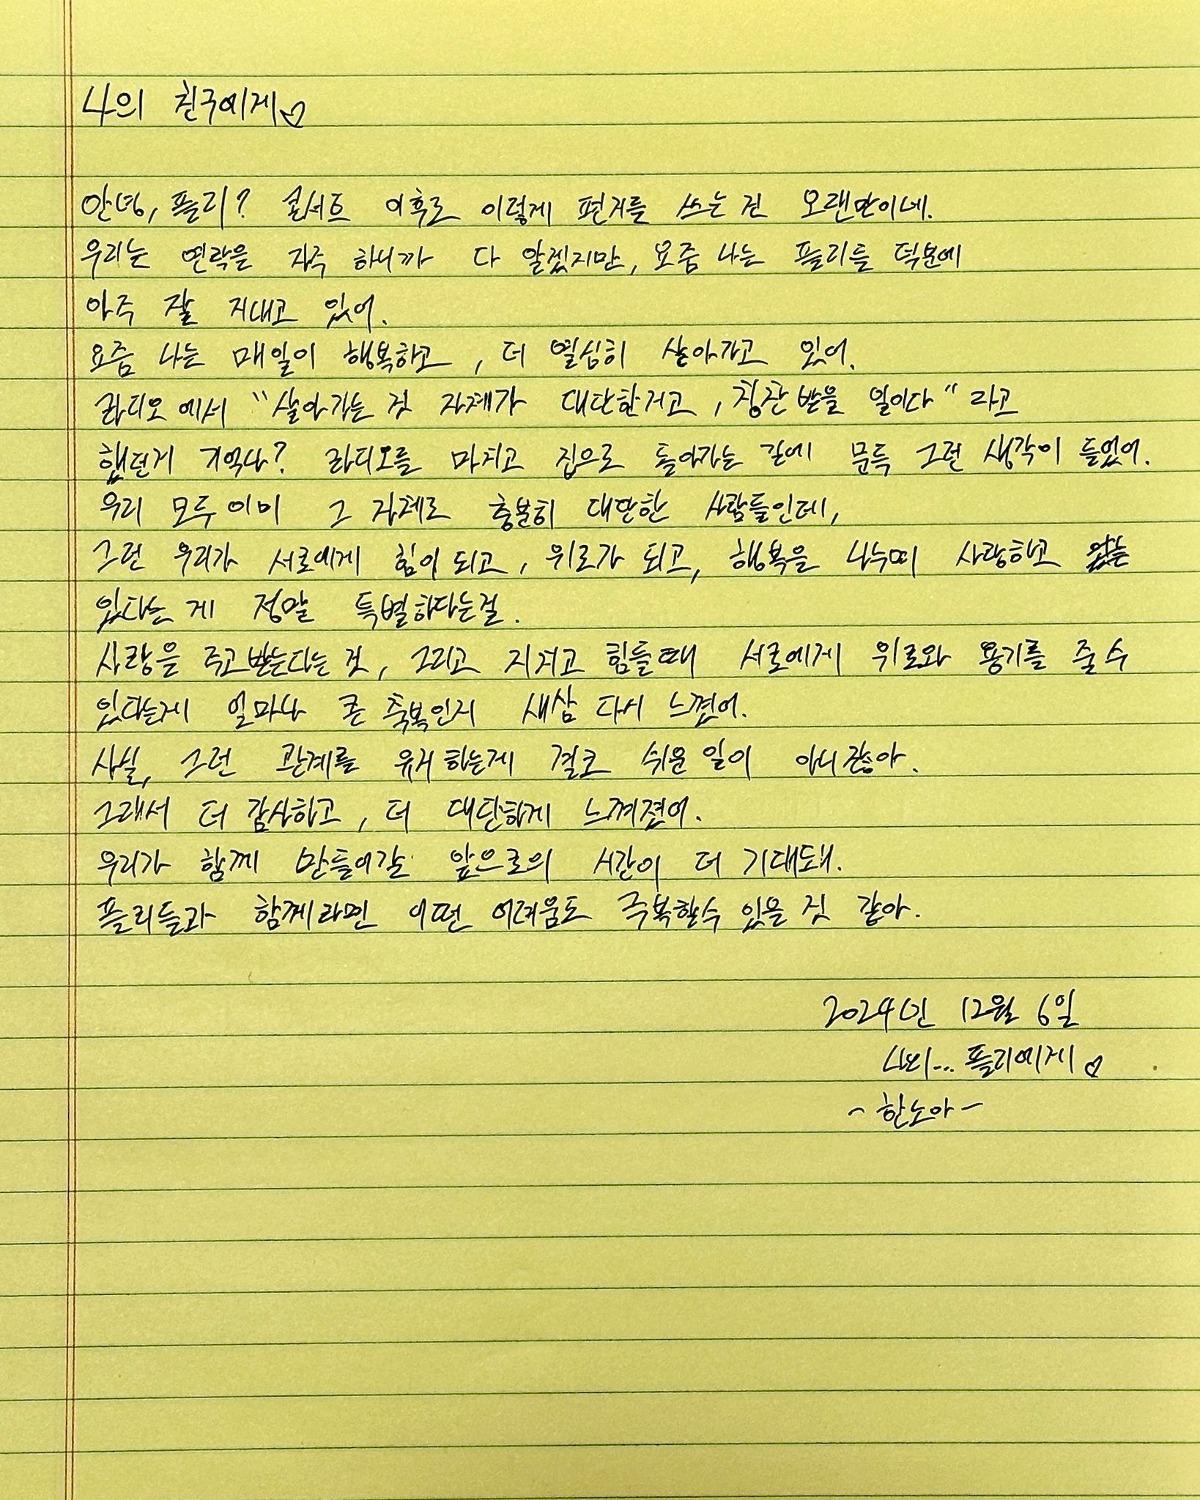 나의 친구에게♡
안녕, 플리? 콘서트 이후로 이렇게 편지를 쓰는 건 오랜만이네.
우리는 연락을 자주 하니까 다 알겠지만, 요즘 나는 플리들 덕분에
아주 잘 지내고 있어.
요즘 나는 매일이 행복하고, 더 열심히 살아가고 있어.
라디오에서 "살아가는 것 자체가 대단한거고, 칭찬 받을 일이다" 라고
했던거 기억나? 라디오를 마치고 집으로 돌아가는 길에 문득 그런 생각이 들었어.
우리 모두 이미 그 자체로 충분히 대단한 사람들인데,
그런 우리가 서로에게 힘이 되고, 위로가 되고, 행복을 나누며 사랑하고
있다는 게 정말 특별하다는걸.
사랑을 주고받는다는 것, 그리고 지치고 힘들때 서로에게 위로와 용기를 줄 수
있다는게 얼마나 큰 축복인지 새삼 다시 느꼈어.
사실, 그런 관계를 유지하는게 결코 쉬운 일이 아니잖아.
그래서 더 감사하고, 더 대단하게 느껴졌어.
우리가 함께 만들어갈 앞으로의 시간이 더 기대돼.
플리들과 함께라면 어떤 어려움도 극복할수 있을 것 같아.
2024년 12월 6일
나의... 플리에게♡
~한노아~